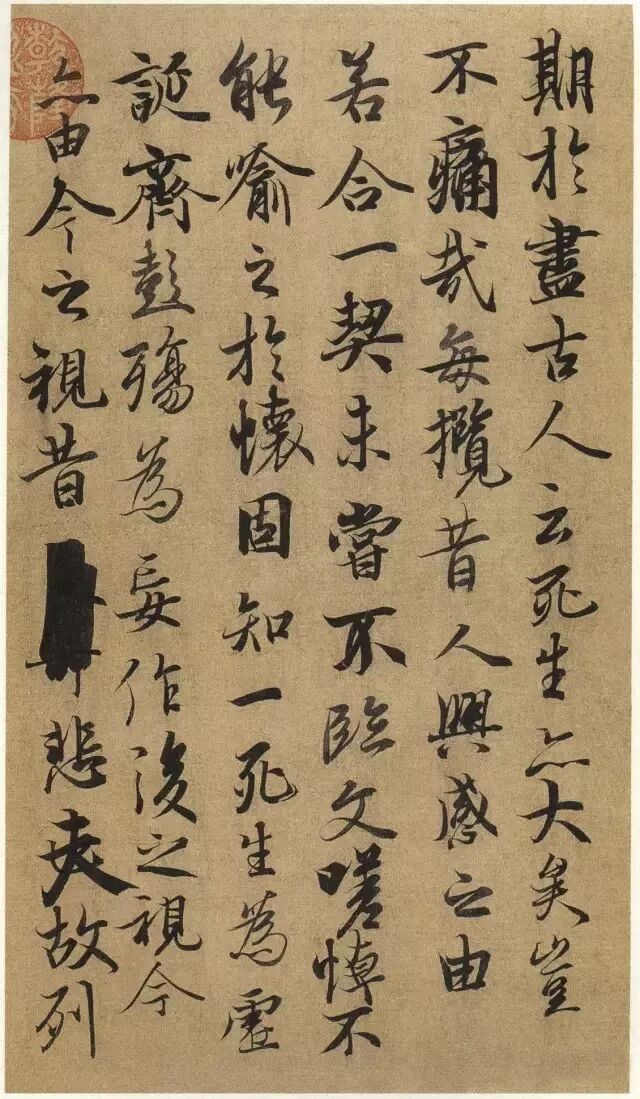 期於盡古人云死生亦大矣豈
不痛哉每攬昔人興感之由
若合一契未嘗不臨文嗟悼不
能喻之於懷固知一死生為虛
誕齊彭殤為妄作後之視今
亦由今之視昔悲夫故列